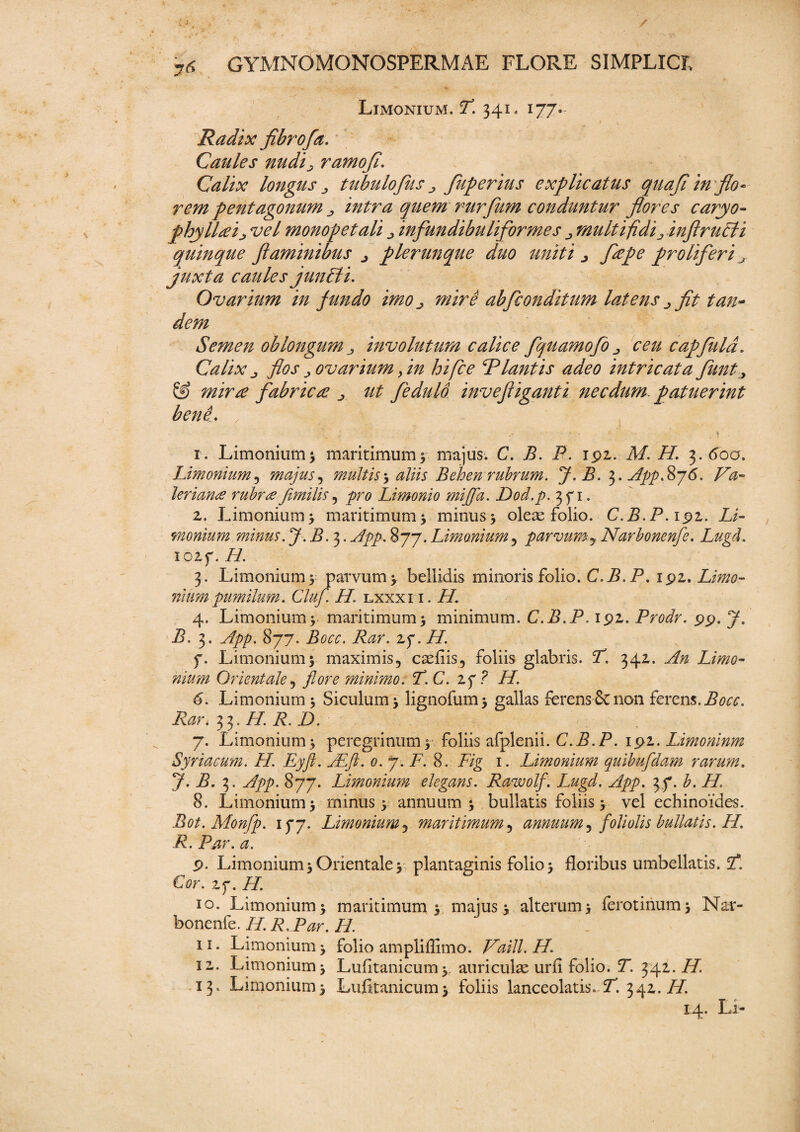 76 GYMNOMONOSPERMAE FLORE SIMPLICI,
Limonium. T. 341. 177.
Radix fibrosa.
Caules nudi, ramosi.
Calix longus, tubulosus, superius explicatus quasi in flo-
rem pentagonum, intra quem rursum conduntur flores caryo-
phyllæi, vel monopetali, infundibuliformes, multifidi, instructi
quinque staminibus, plerunque duo uniti, sæpe proliferi,
juxta caules juncti.
Ovarium in fundo imo, mirè absconditum latens, fit tan-
dem
Semen oblongum, involutum calice squamoso, ceu capsulâ.
Calix, flos, ovarium, in hisce Plantis adeo intricata sunt,
& miræ fabricæ, ut sedulò investiganti necdum patuerint
benè.
1. Limonium; maritimum; majus. C. B. P. 192. M. H. 3. 600.
Limonium, majus, multis; aliis Behen rubrum. J. B. 3. App. 876. Va-
lerianæ rubræ similis, pro Limonio missa. Dod. p. 351.
2. Limonium; maritimum; minus; oleæ folio. C. B. P. 192. Li-
monium minus. J. B. 3. App. 877. Limonium, parvum, Narbonense. Lugd.
1025. H.
3. Limonium; parvum; bellidis minoris folio. C. B. P. 192. Limo-
nium pumilum. Clus. H. LXXXII. H.
4. Limonium; maritimum; minimum. C. B. P. 192. Prodr. 99. J.
B. 3. App. 877. Bocc. Rar. 25. H.
5. Limonium; maximis, cæsiis, foliis glabris. T. 342. An Limo-
nium Orientale, flore minimo. T. C. 25? H.
6. Limonium; Siculum; lignosum; gallas ferens & non ferens. Bocc.
Rar. 33. H. R. D.
7. Limonium; peregrinum; foliis asplenii. C. B. P. 192. Limoninm
Syriacum. H. Eyst. Æst. o. 7. F. 8. Fig 1. Limonium quibusdam rarum.
J. B. 3. App. 877. Limonium elegans. Rawolf. Lugd. App. 35. b. H.
8. Limonium; minus; annuum; bullatis foliis; vel echinoïdes.
Bot. Monsp. 157. Limonium, maritimum, annuum, foliolis bullatis. H.
R. Par. a.
9. Limonium; Orientale; plantaginis folio; floribus umbellatis. T.
Cor. 25. H.
10. Limonium; maritimum; majus; alterum; serotinum; Nar-
bonense. H. R. Par. H.
11. Limonium; folio amplissimo. Vaill. H.
12. Limonium; Lusitanicum; auriculæ ursi folio. T. 342. H.
13. Limonium; Lusitanicum; foliis lanceolatis. T. 342. H.
14. Li-